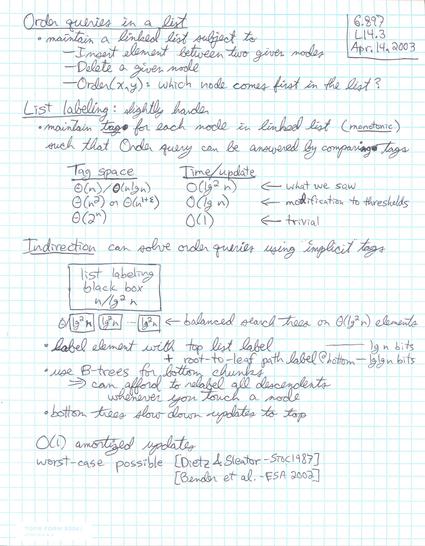 Order queries in a list
6.897
L14.3
Apr. 14, 2003
• maintain a linked list subject to
— Insert element between two given nodes
— Delete a given node
— Order(x,y): which node comes first in the list?
List labeling: slightly harder
• maintain tags for each node in linked list (monotonic)
such that Order query can be answered by comparing tags
Tag space Time/update
Θ(n)/Θ(n lg n) O(lg² n) ← what we saw
Θ(n²) or Θ(n¹⁺ᵋ) O(lg n) ← modification to thresholds
Θ(2ⁿ) O(1) ← trivial
Indirection can solve order queries using implicit tags
list labeling
black box
n/lg² n
lg² n lg² n ... lg² n ← balanced search trees on Θ(lg² n) elements
• label element with top list label — lg n bits
+ root-to-leaf path label @ bottom — lglg n bits
• use B-trees for bottom chunks
⇒ can afford to relabel all descendents
whenever you touch a node
• bottom trees slow down updates to top
O(1) amortized updates
worst-case possible [Dietz & Sleator - STOC 1987]
[Bender et al. - ESA 2002]